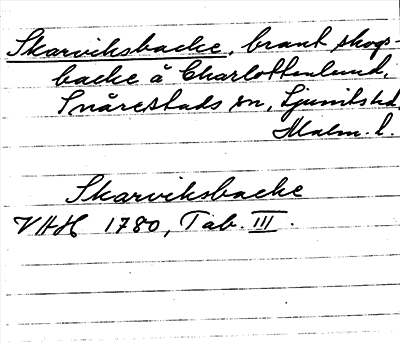 Skarviksbacke, brant skogs-
backe å Charlottenlund,
Snårestads sn, Ljunits hd,
Malm. l.
Skarviksbacke
VHH 1780, Tab. III.